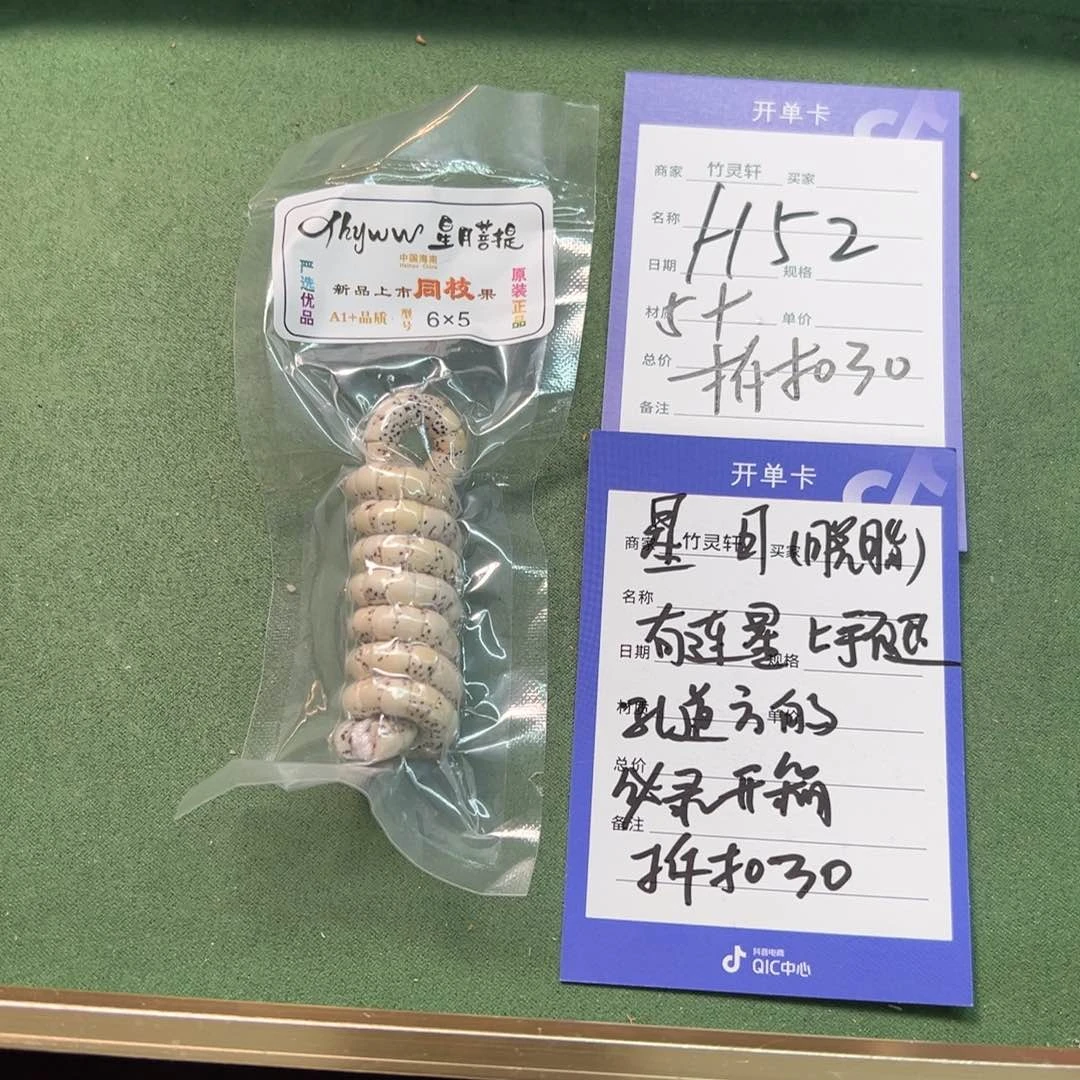 Thyww 星月菩提
中国海南
Hainan China
严选优品
新品上市同枝果
原装正品
A1+品质 型号 6×5
开单卡
商家 竹灵轩 买家
名称 H52
日期 规格
材质 5+ 单价
总价 拆扣30
备注
开单卡
商家 竹灵轩 买家
星月(脱脂)
名称
有连星 上手即退
日期 规格
孔道方的
材质 单价
总价
必录开箱
备注
拆扣30
抖音电商
QIC中心